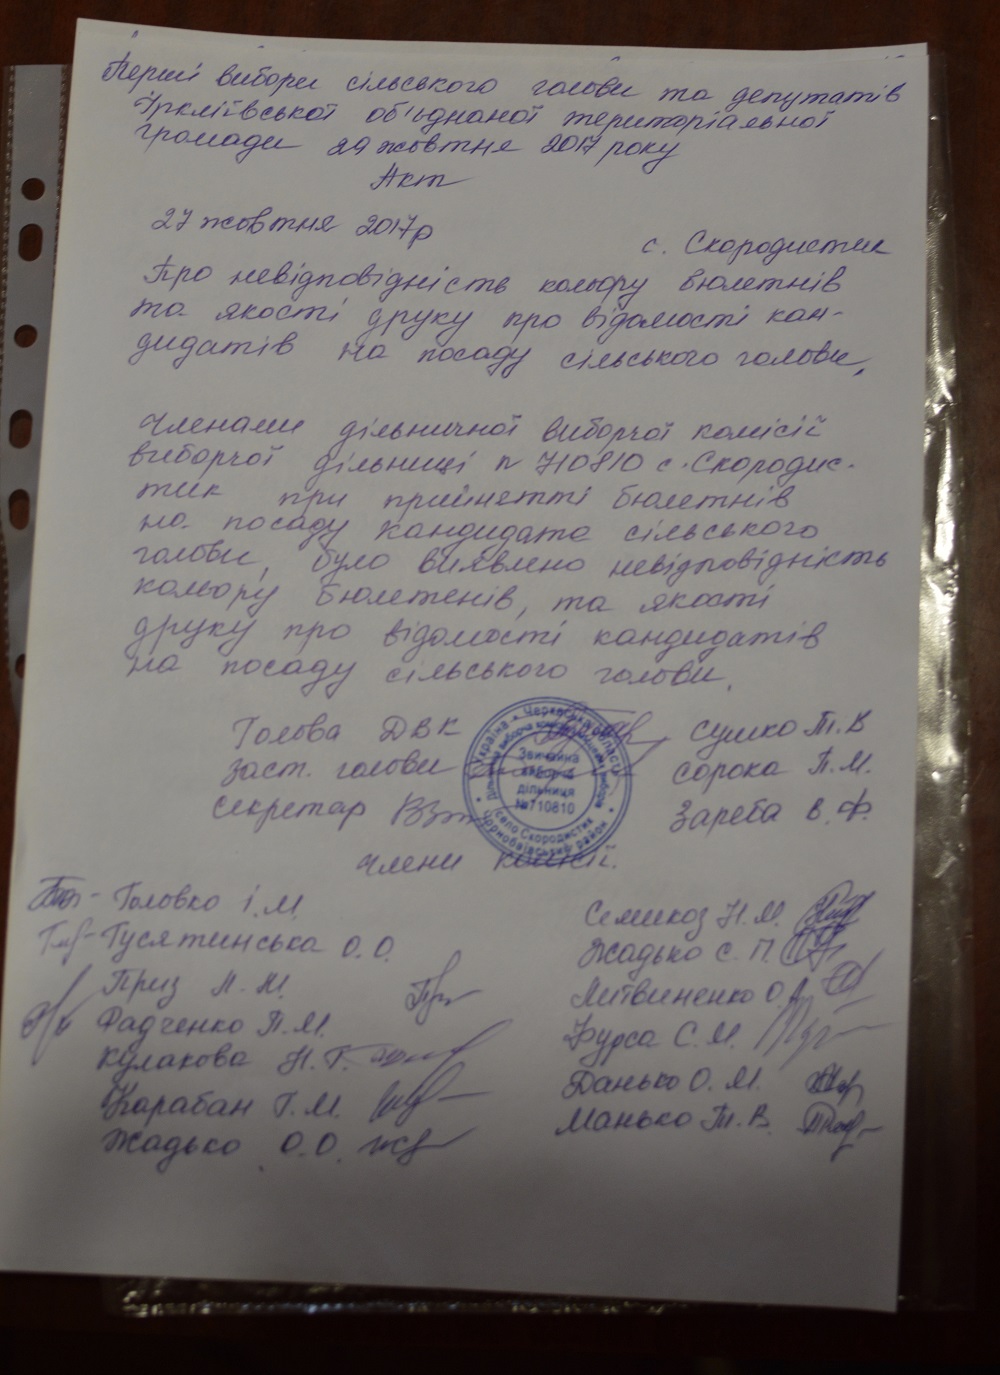 Перші вибори сільського голови та депутатів
Іркліївської об'єднаної територіальної
громади 29 жовтня 2017 року
Акт
27 жовтня 2017р
с. Скородистик
Про невідповідність кольору бюлетнів
та якості друку про відомості кан-
дидатів на посаду сільського голови,
Членами дільничної виборчої комісій
виборчої дільниці № 710810 с. Скородис-
тик при прийнетті бюлетнів
на посаду кандидата сільського
голови, було виявлено невідповідність
кольору бюлетенів, та якості
друку про відомості кандидатів
на посаду сільського голови.
Голова ДВК Сушко Т.В
Заст. голови Сорока П.М.
Секретар Зареба В.Ф.
Україна * Черкаська область
Звичайна
виборча
дільниця
№710810
село Скородистик
Чорнобаївський район
Члени комісії.
Головко І.М.
Гусятинська О.О.
Приз Л.М.
Фадченко П.М.
Кулакова Н.Г.
Карабан Г.М.
Жадько О.О.
Семикоз Н.М.
Жадько С.П.
Литвиненко О.А.
Фурса С.М.
Данько О.М.
Манько Т.В.